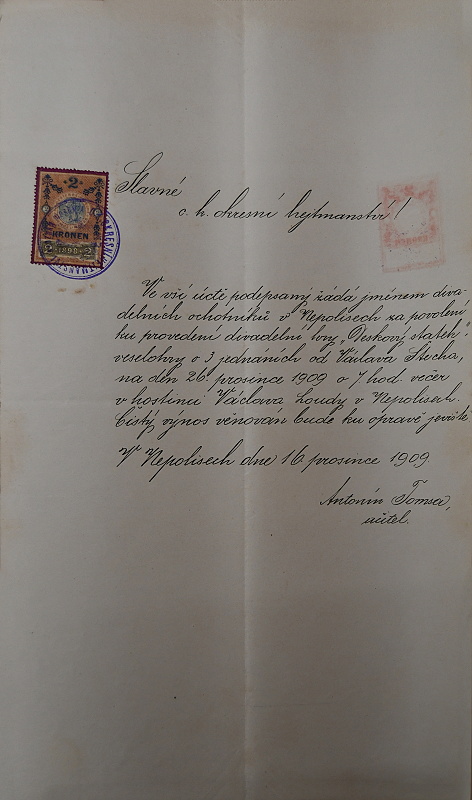 2
KRONEN
2 1898 2
Slavné
c. k. okresní hejtmanství!
Ve vší úctě podepsaný žádá jménem diva-
delních ochotníků v Nepolisech za povolení
ku provedení divadelní hry „Deskový statek“;
veselohry o 3 jednáních od Václava Štecha,
na den 26. prosince 1909 o 7 hod. večer
v hostinci Václava Loudy v Nepolisech.
Čistý výnos věnován bude ku opravě jeviště
V Nepolisech dne 16. prosince 1909
Antonín Tomsa,
učitel.